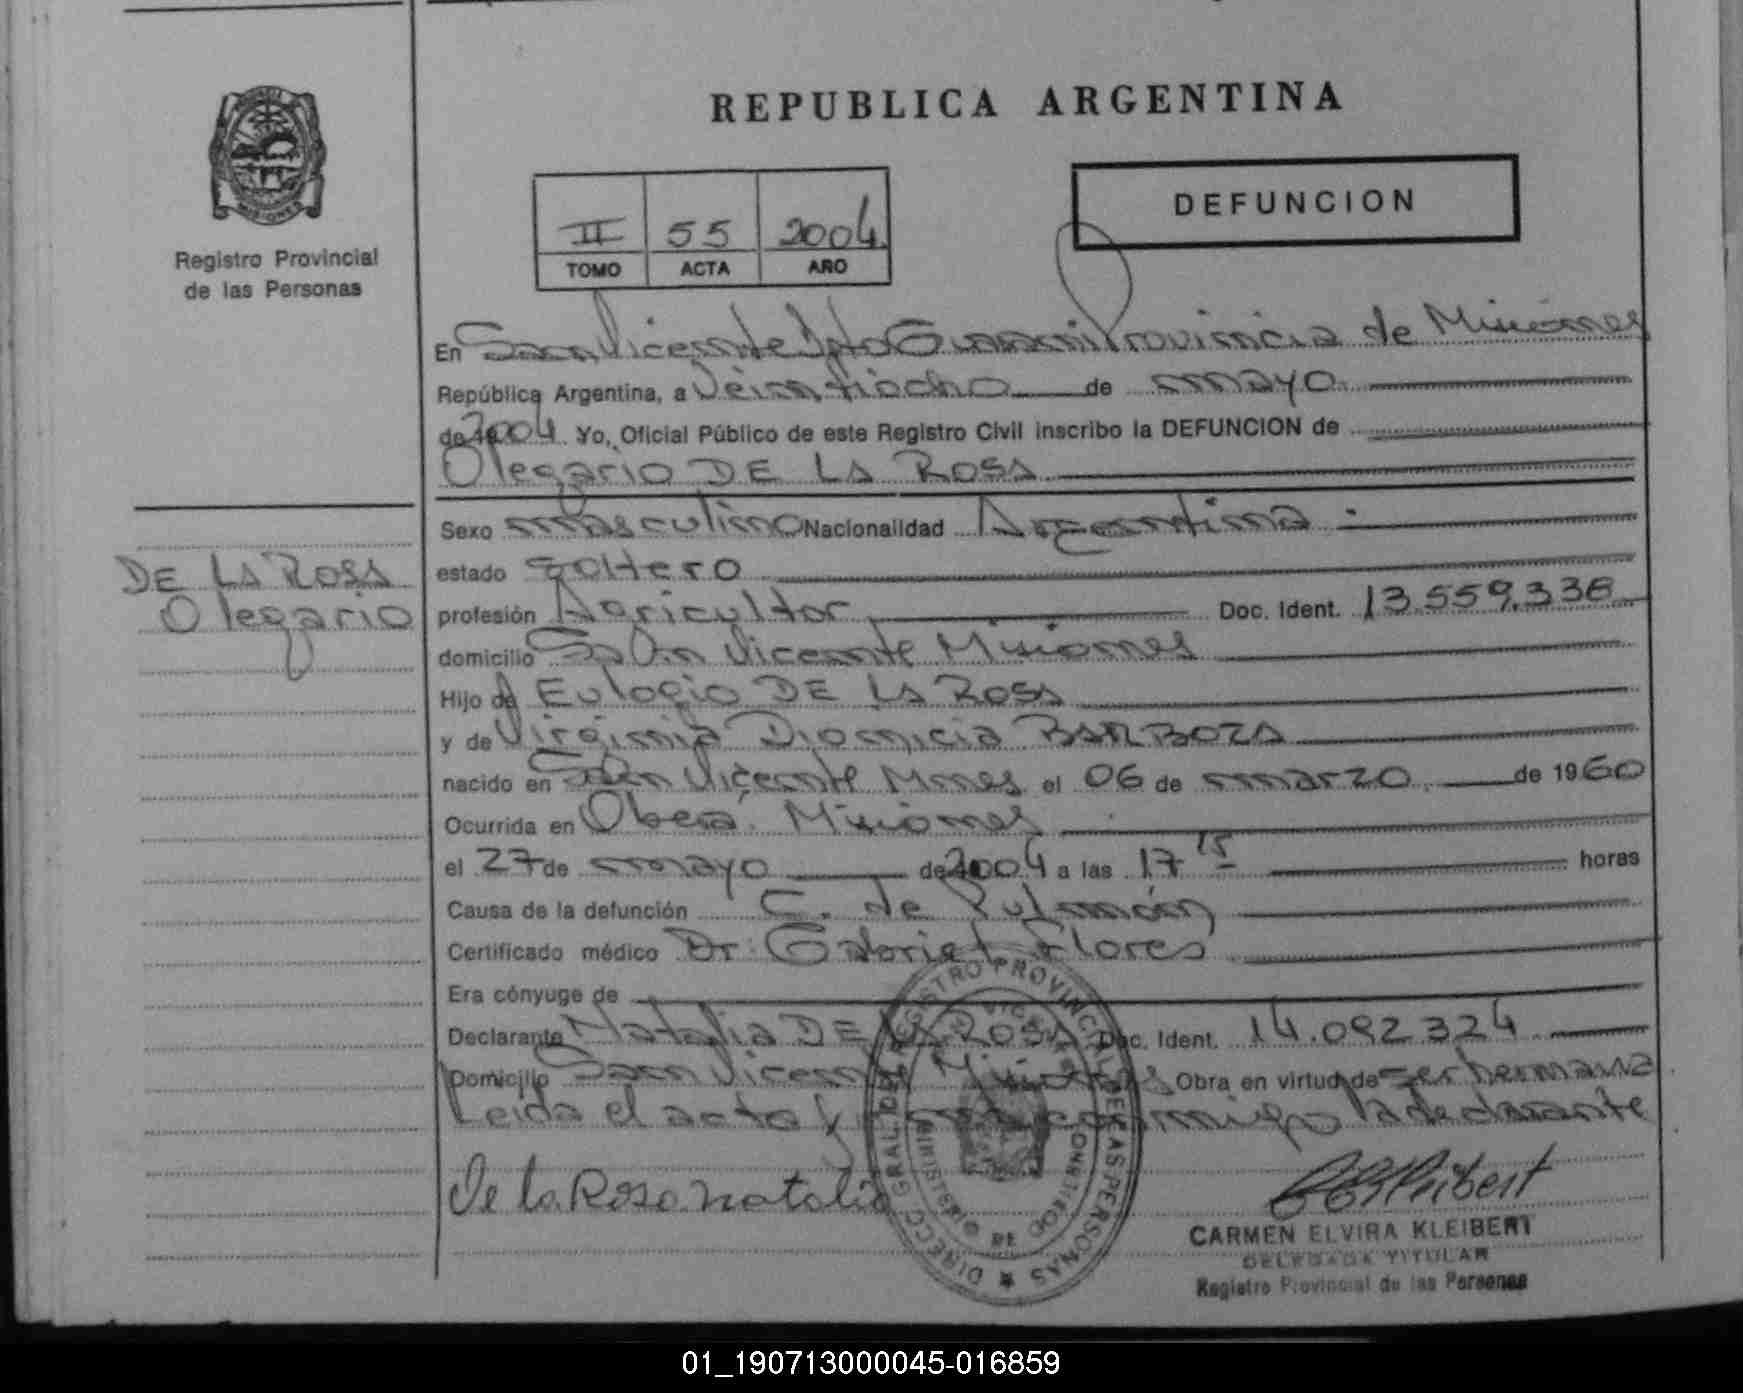 REPUBLICA ARGENTINA
DEFUNCION
II 55 2004
TOMO ACTA AÑO
MISIONES
Registro Provincial
de las Personas
En San Vicente Dpto Guaraní Provincia de Misiones
República Argentina, a Veintiocho de mayo
de 2004 Yo, Oficial Público de este Registro Civil inscribo la DEFUNCION de
Olegario DE LA ROSA
Sexo masculino Nacionalidad Argentina
estado soltero
DE LA ROSA
Olegario
profesión Agricultor Doc. Ident. 13.559.338
domicilio San Vicente Misiones
Hijo de Eulogio DE LA ROSA
y de Virginia Dionicia BARBOZA
nacido en San Vicente Mnes el 06 de marzo de 1960
Ocurrida en Oberá Misiones
el 27 de mayo de 2004 a las 17 15 horas
Causa de la defunción C. de Pulmón
Certificado médico Dr. Gabriel Flores
Era cónyuge de
Declarante Natalia DE LA ROSA Doc. Ident. 14.092.324
Domicilio San Vicente Misiones Obra en virtud de ser hermana
Leida el acta firma conmigo la declarante
De la Rosa natalia
CARMEN ELVIRA KLEIBERT
DELEGADA TITULAR
Registro Provincial de las Personas
DIRECC. GRAL. DEL REGISTRO PROVINCIAL DE LAS PERSONAS
01_190713000045-016859